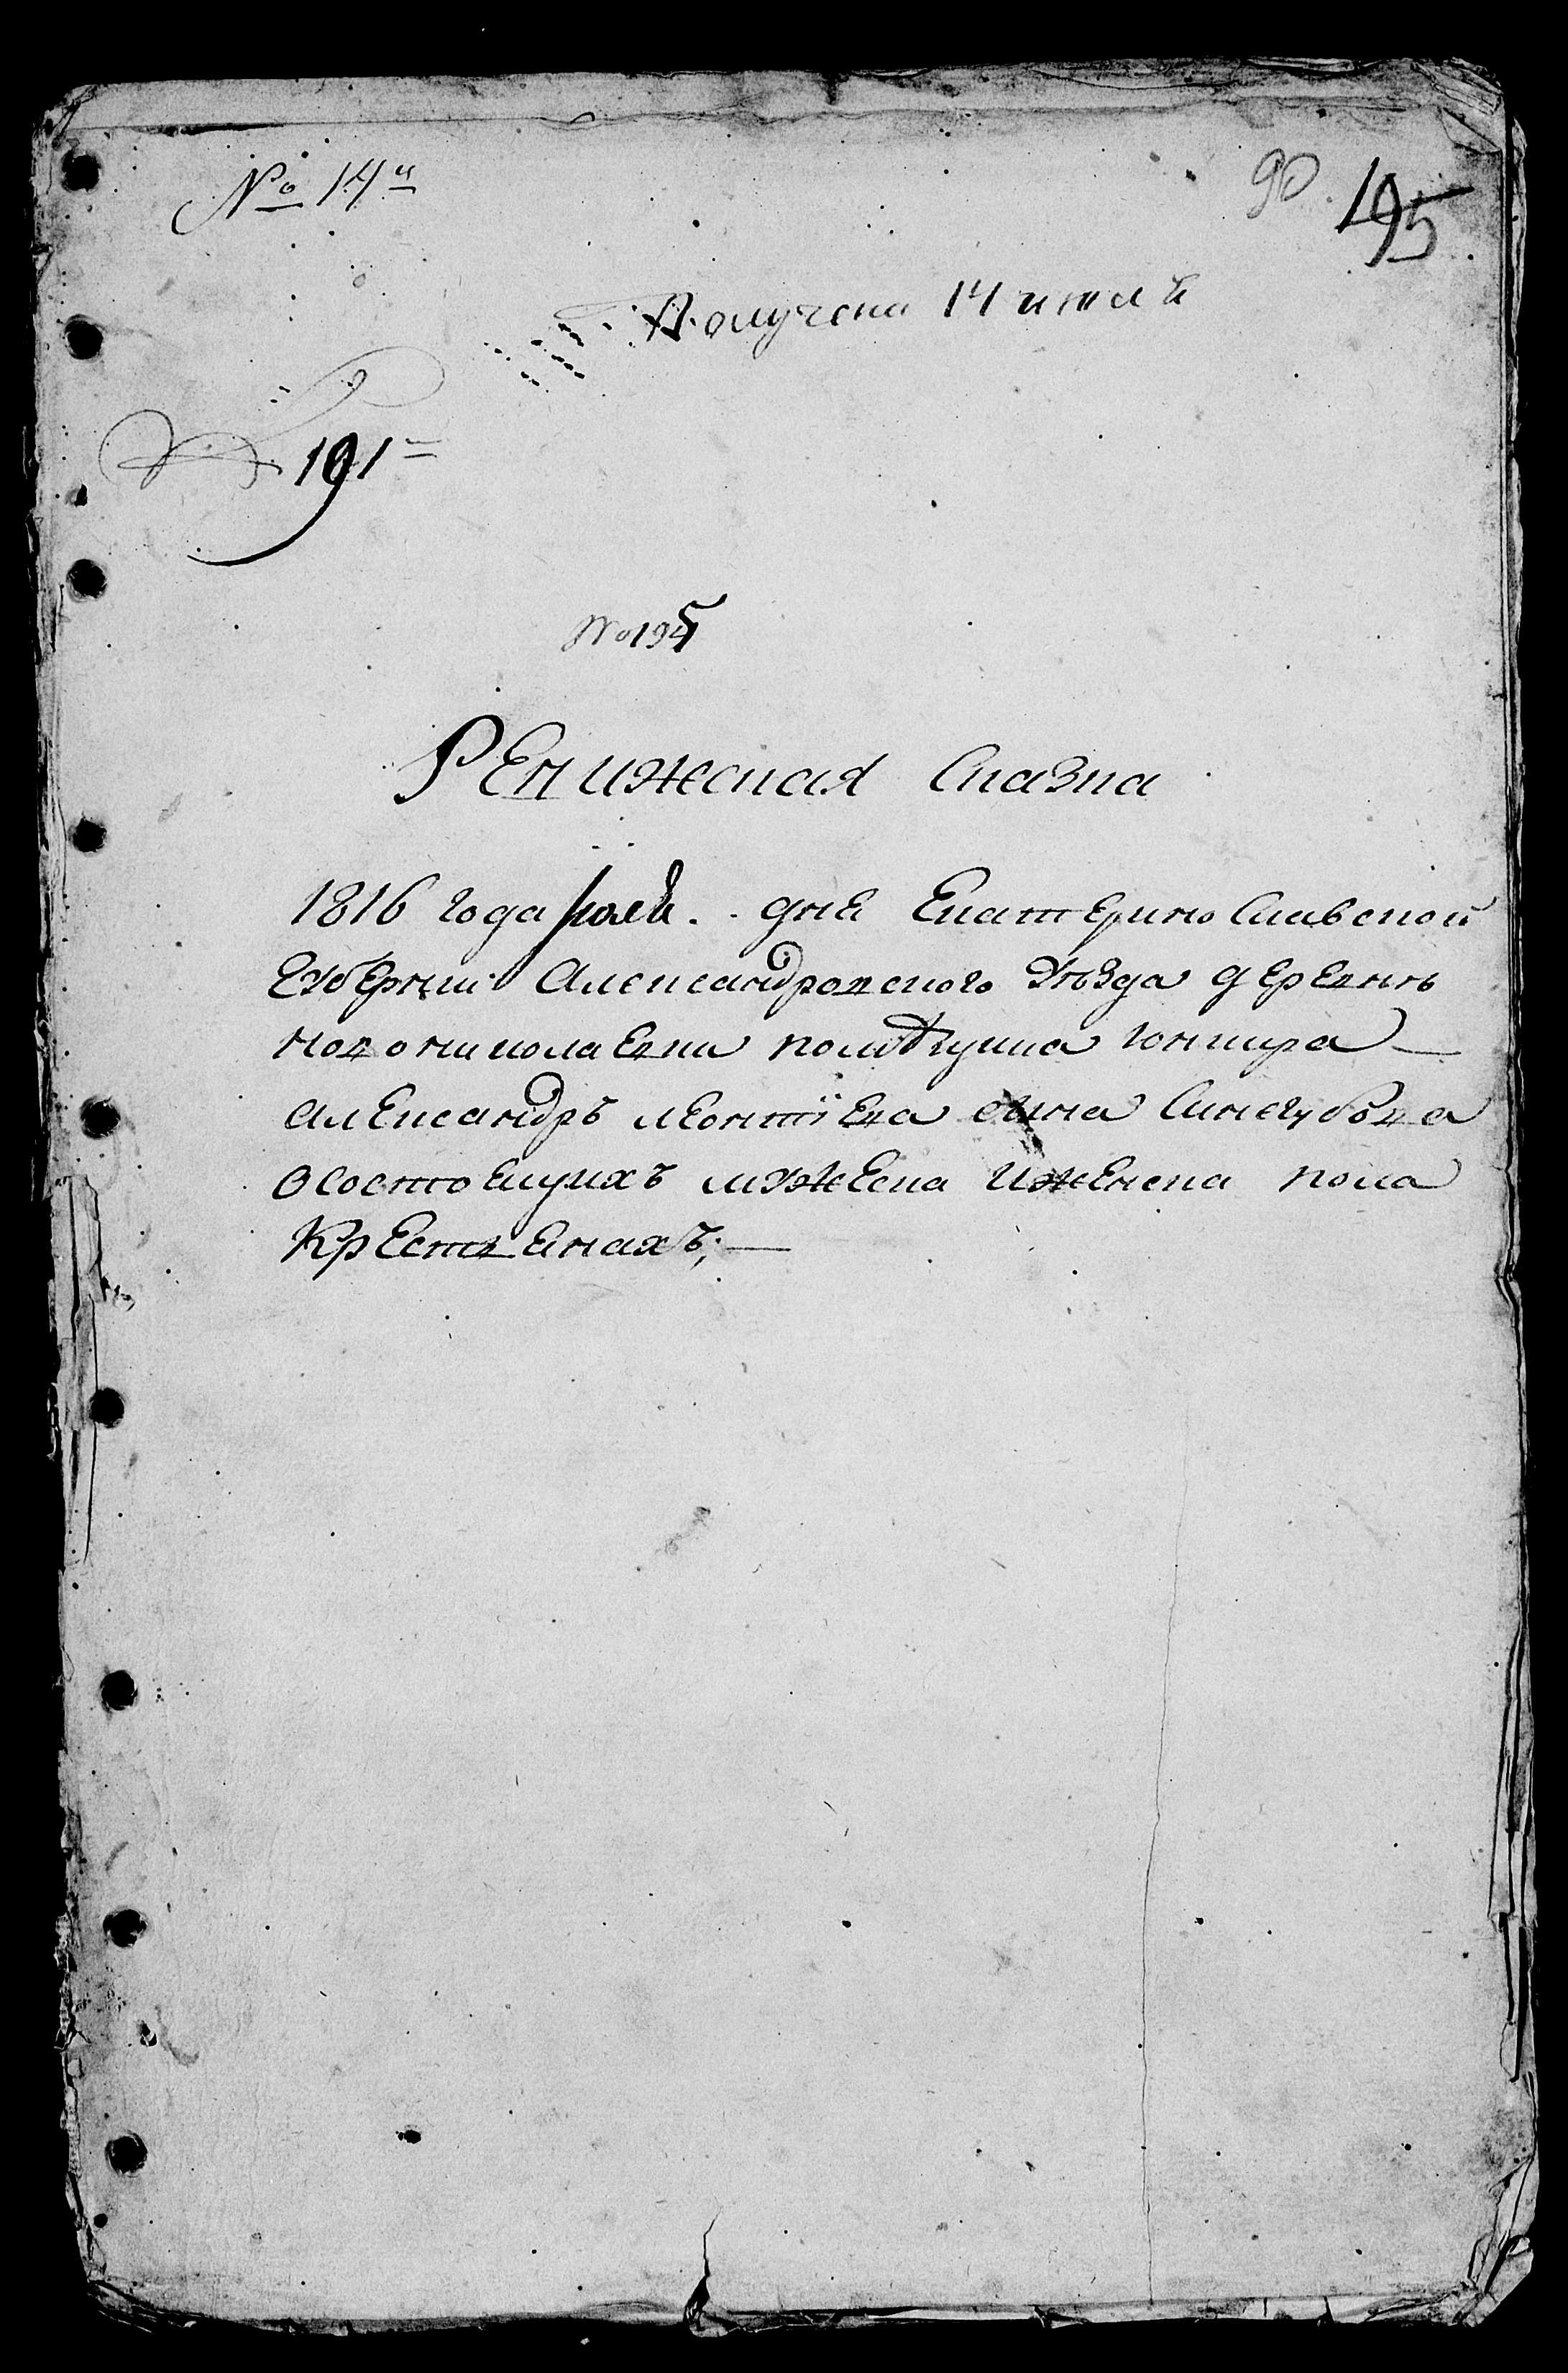 № 14й
90 195
Получена 14 июля
191
№ 195
Ревижская Сказка
1816 года июля дня Екатеринославской
Губернии Александровского уъзда деревнъ
новониколаевки помѣщика юнкира
александръ леонтїева сина Синегубова
о состоящихъ мужеска и женска пола
Крестьянахъ;